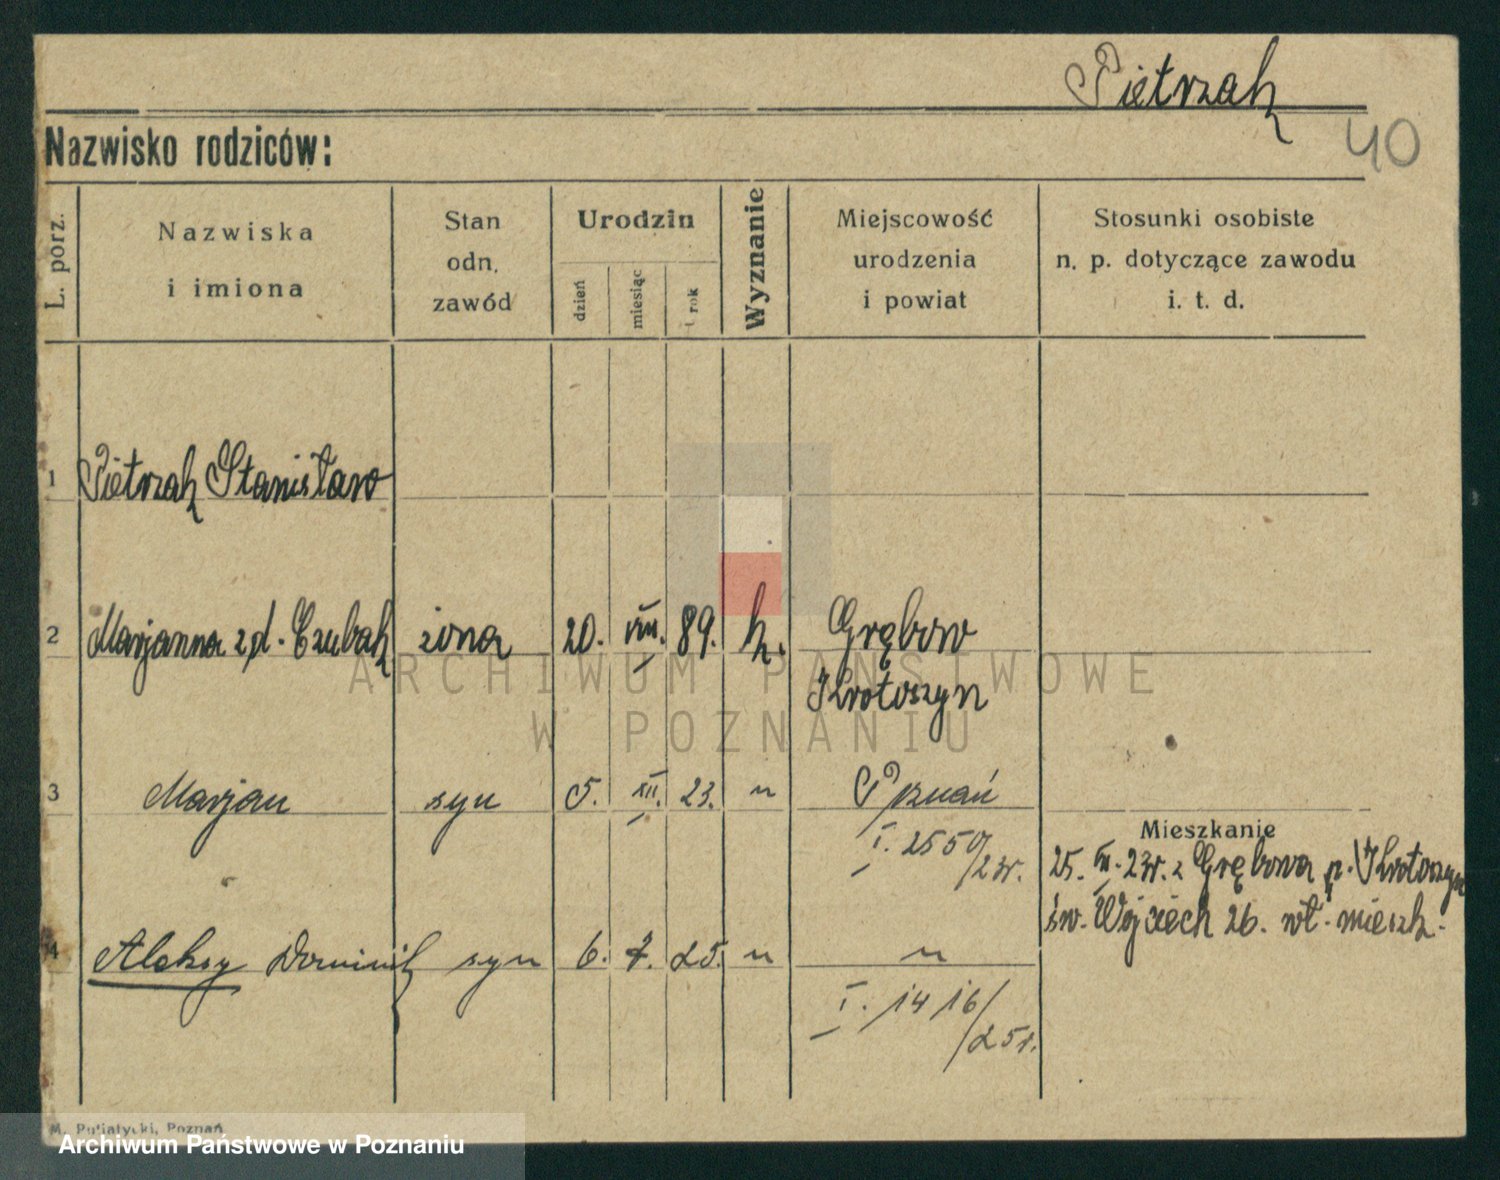 Pietrzak
40
Nazwisko rodziców:
L. porz.
Nazwiska
i imiona
Stan
odn.
zawód
Urodzin
dzień
miesiąc
rok
Wyznanie
Miejscowość
urodzenia
i powiat
Stosunki osobiste
n. p. dotyczące zawodu
i. t. d.
1 Pietrzak Stanisław
2 Marjanna zd. Czubak żona 20. VIII. 89. k. Grębow
Krotoszyn
3 Marjan syn 5. XII. 23. " Poznań
I. 2550/23r.
Mieszkanie
25. VII. 23r. z Grębowa p. Krotoszyn
św. Wojciech 26. wł. mieszk.
4 Aleksy Dominik syn 6. 7. 25. " "
I. 1416/25r.
M. Putiatycki, Poznań
ARCHIWUM PAŃSTWOWE
W POZNANIU
Archiwum Państwowe w Poznaniu